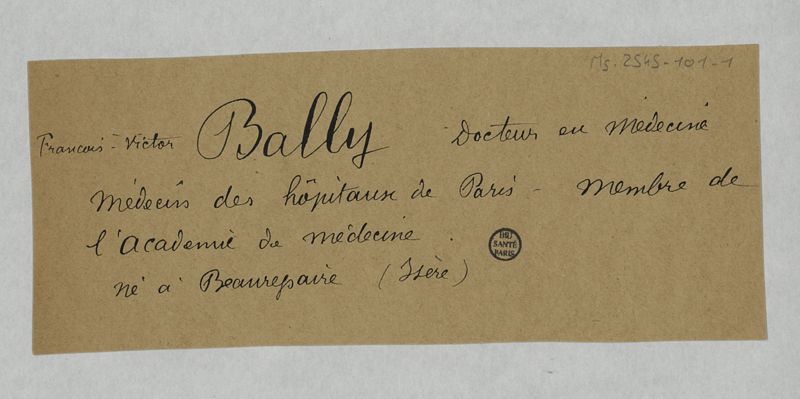 Ms. 2545-101-1
Francois-Victor Bally Docteur en Médecine
Médecin des hôpitaux de Paris - Membre de
l'Academie de médecine.
BIU
SANTÉ
PARIS
né à Beaurepaire (Isère)